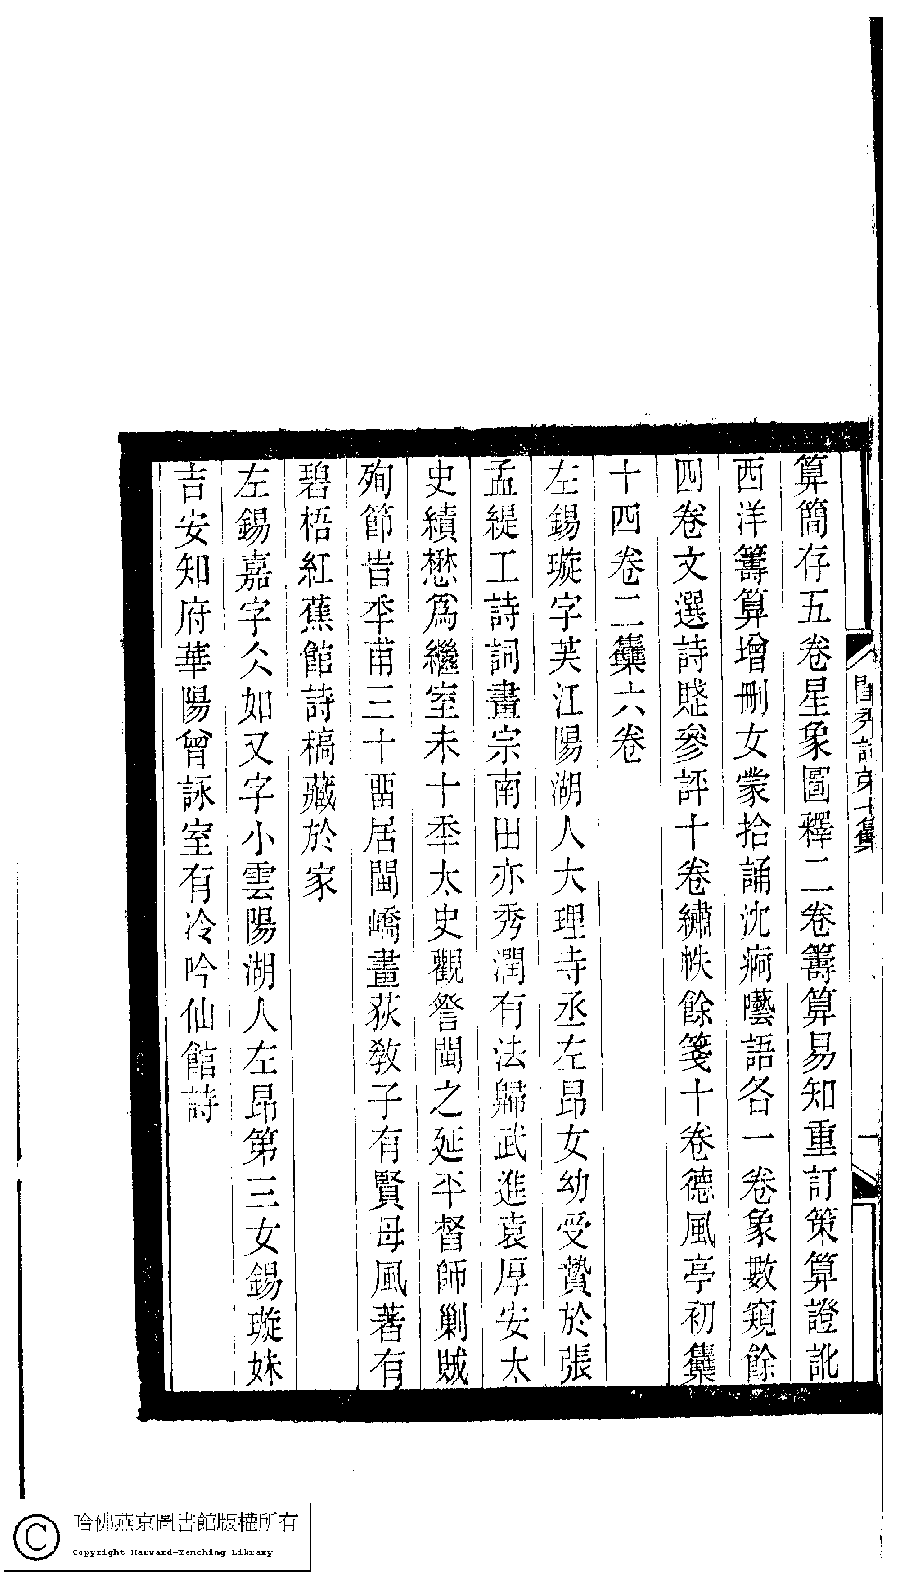 算簡存五卷星象圖釋二卷籌算易知重訂策算證訛
西洋籌算增刪女蒙拾誦沈痾囈語各一卷象數窺餘
四卷文選詩賦參評十卷繡帙餘箋十卷德風亭初集
十四卷二集六卷
左錫璇字芙江陽湖人大理寺丞左昂女幼受贄於張
孟緹工詩詞畫宗南田亦秀潤有法歸武進袁厚安太
史績懋爲繼室未十秊太史觀詧閩之延平督師剿賊
殉節旹秊甫三十酉居閩嶠畫荻教子有賢母風著有
碧梧紅蕉館詩稿藏於家
左錫嘉字仌如又字小雲陽湖人左昂第三女錫璇妹
吉安知府華陽曾詠室有冷吟仙館詩
閨秀詞第十集
一
哈佛燕京圖書館版權所有
Copyright Harvard-Yenching Library